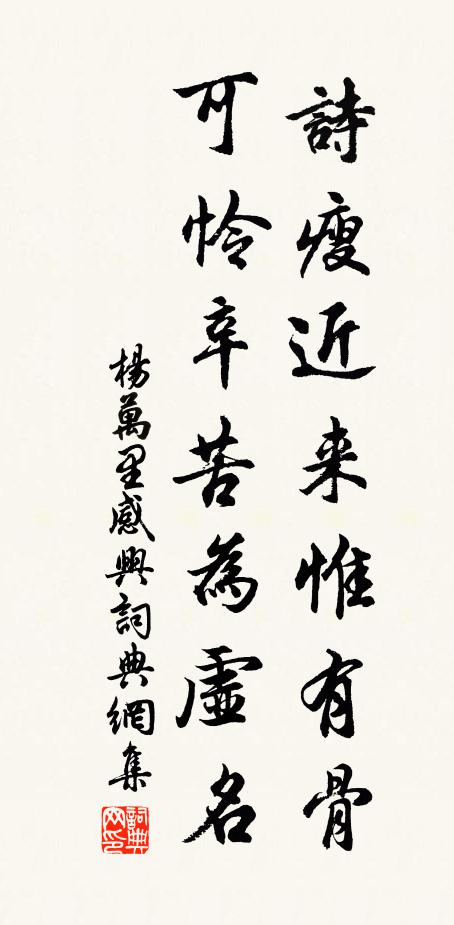 詩瘦近来惟有骨
可怜辛苦為虛名
楊萬里感興詞典網集
詞典网印